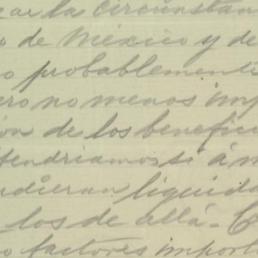 la circunstan
o de México y de
o probablement
ero no menos imp
ón de los benefic
tendriamos si á m
udieran liquida
los de allá. C
o factores import